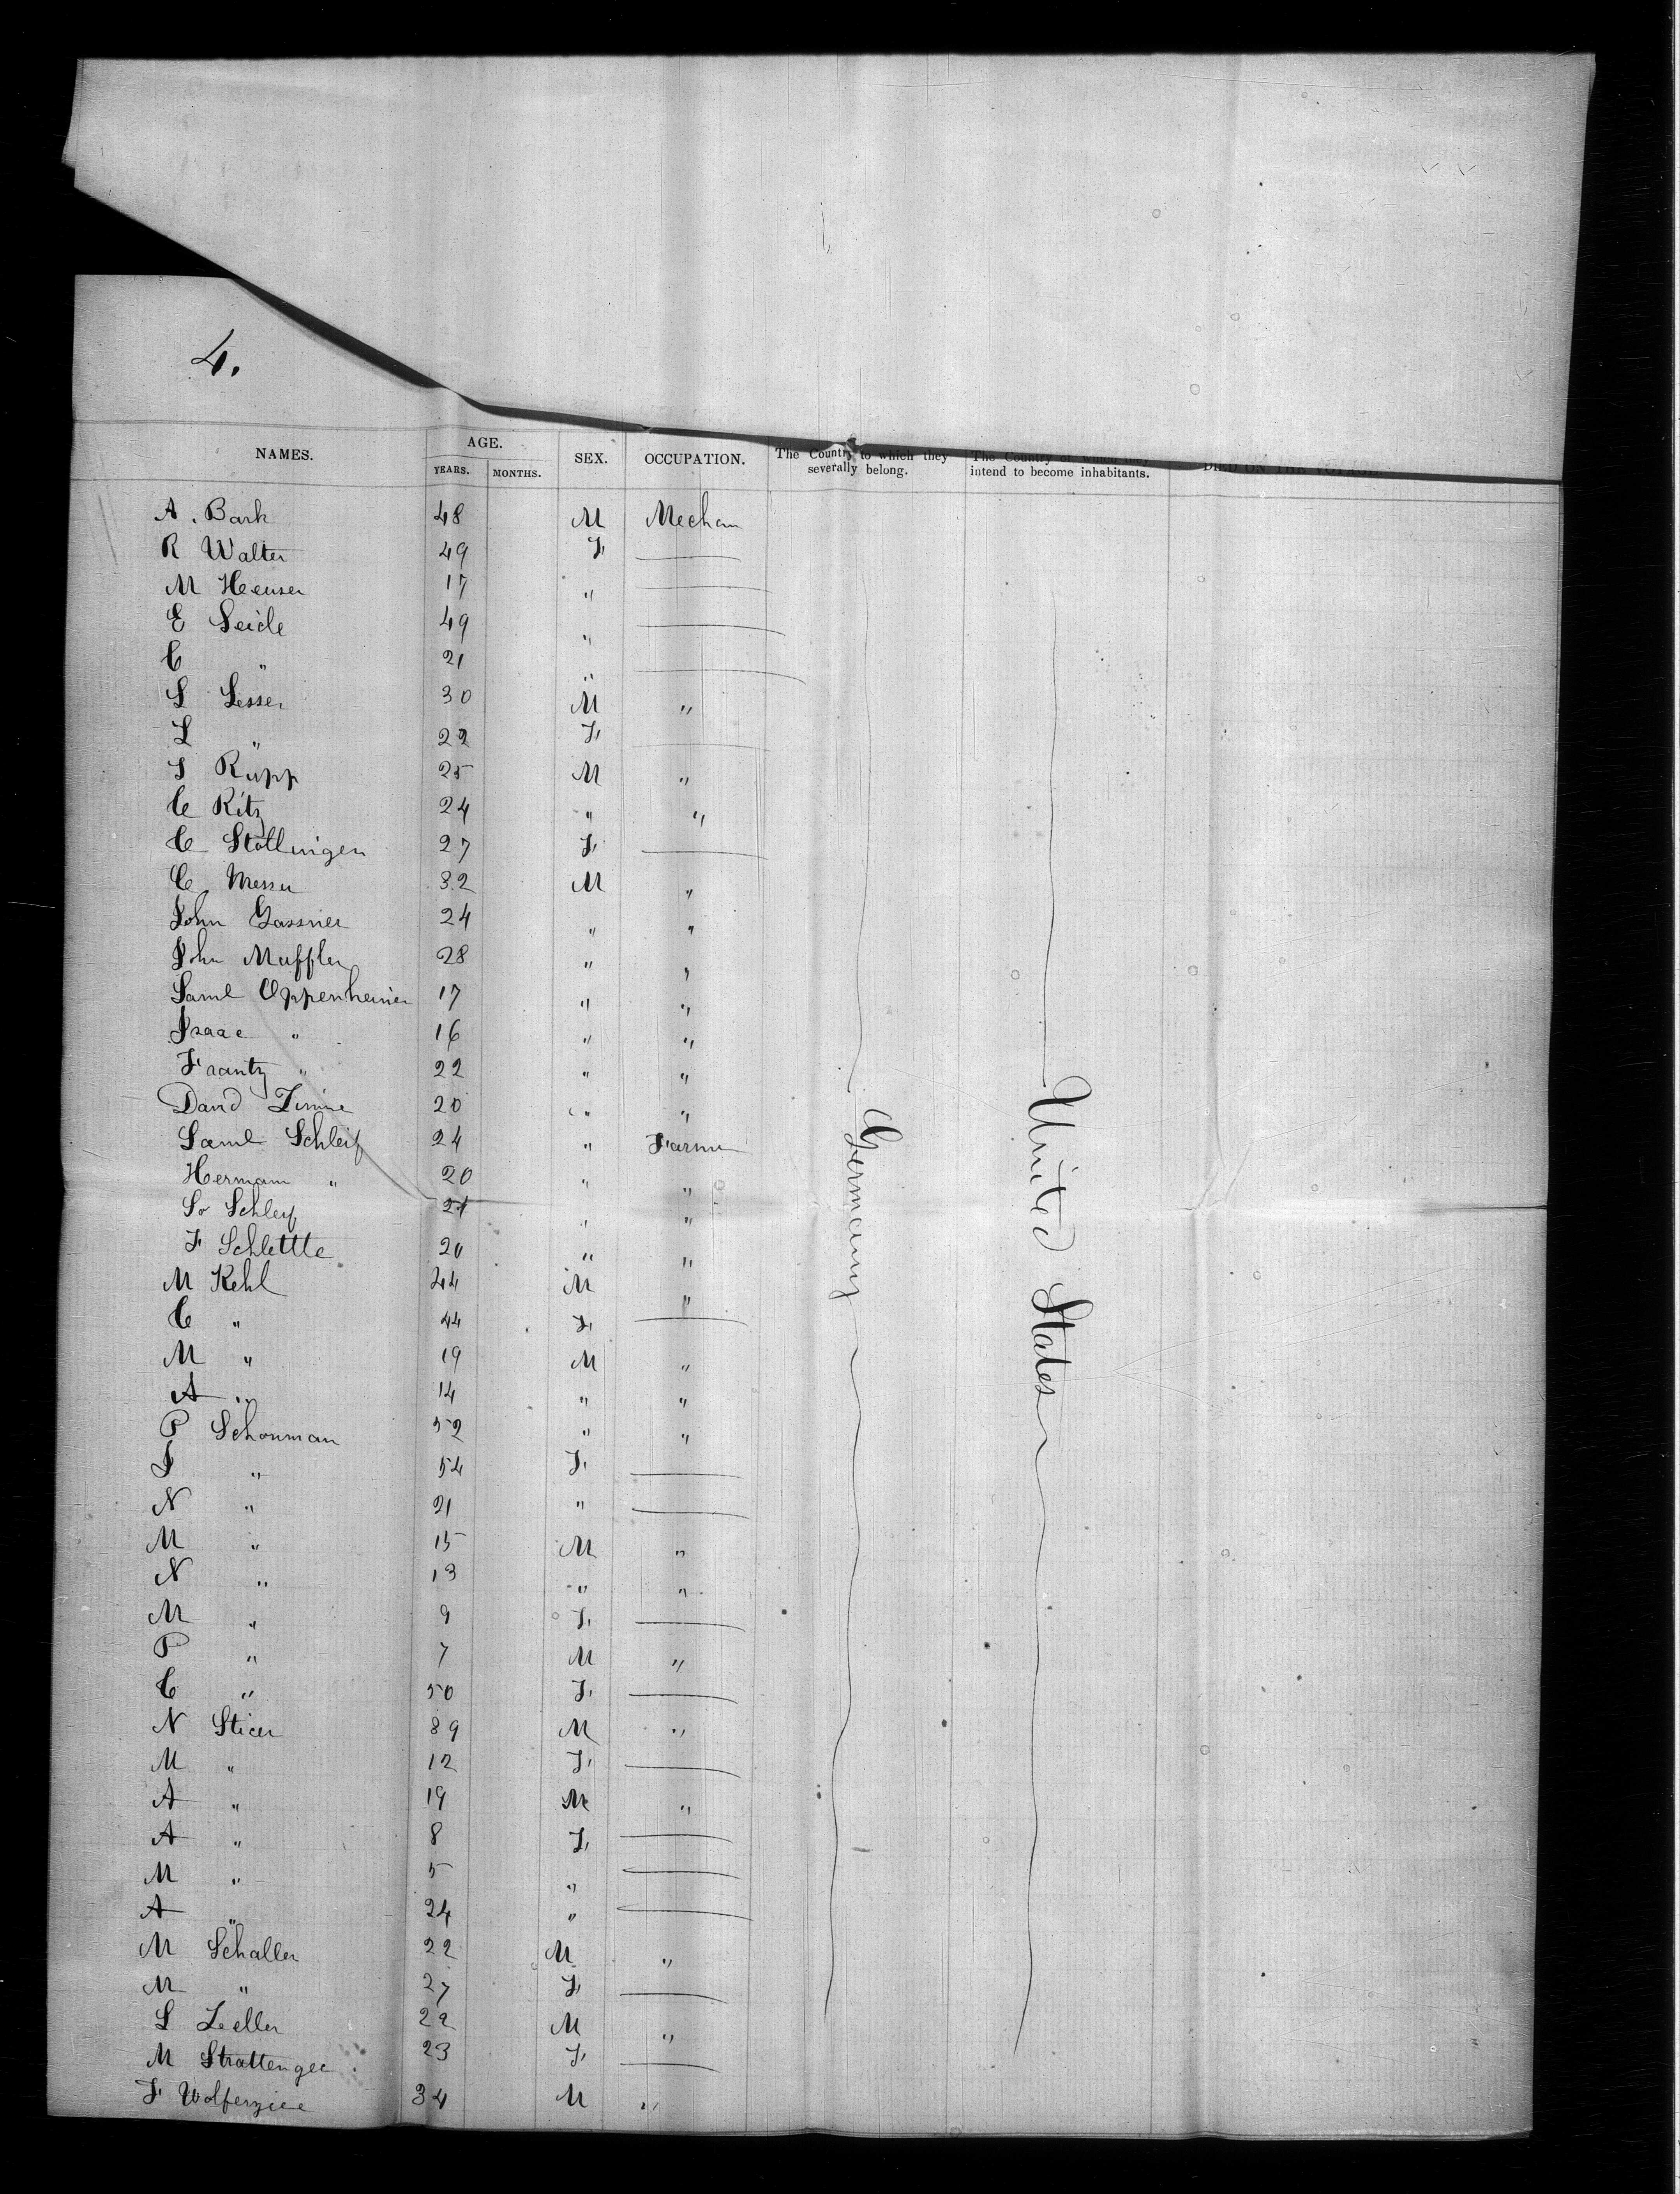 4.
NAMES. AGE. SEX. OCCUPATION. The Country to which they severally belong. The Country of which they intend to become inhabitants. DIED ON THE VOYAGE.
YEARS. MONTHS.
A. Bark 48 M Mechan
R Walter 49 F
M Heuser 17 "
E Seide 49 "
C " 21 "
S Lesser 30 M "
L " 22 F
S Rupp 25 M "
C Ritz 24 " "
C Stollingen 27 F
C Messer 32 M "
John Gassner 24 " "
John Muffler 28 " "
Saml Oppenheimer 17 " "
Isaac " 16 " "
Frantz " 22 " "
David 20 " "
Saml Schleif 24 " Farmer
Hermann " 20 " "
So Schleif 21 " "
F Schlettle 20 " "
M Kehl 44 M "
C " 44 F
M " 19 M "
A " 14 " "
P Schonman 52 " "
J " 54 F
N " 21 "
M " 15 M "
N " 13 " "
M " 9 F
P " 7 M "
C " 50 F
N Sticer 89 M "
M " 12 F
A " 19 M "
A " 8 F
M " 5 "
A " 24 "
M Schaller 22 M "
M " 27 F
S Zeller 22 M "
M Strattenger 23 F
F 34 M "
Germany
United States